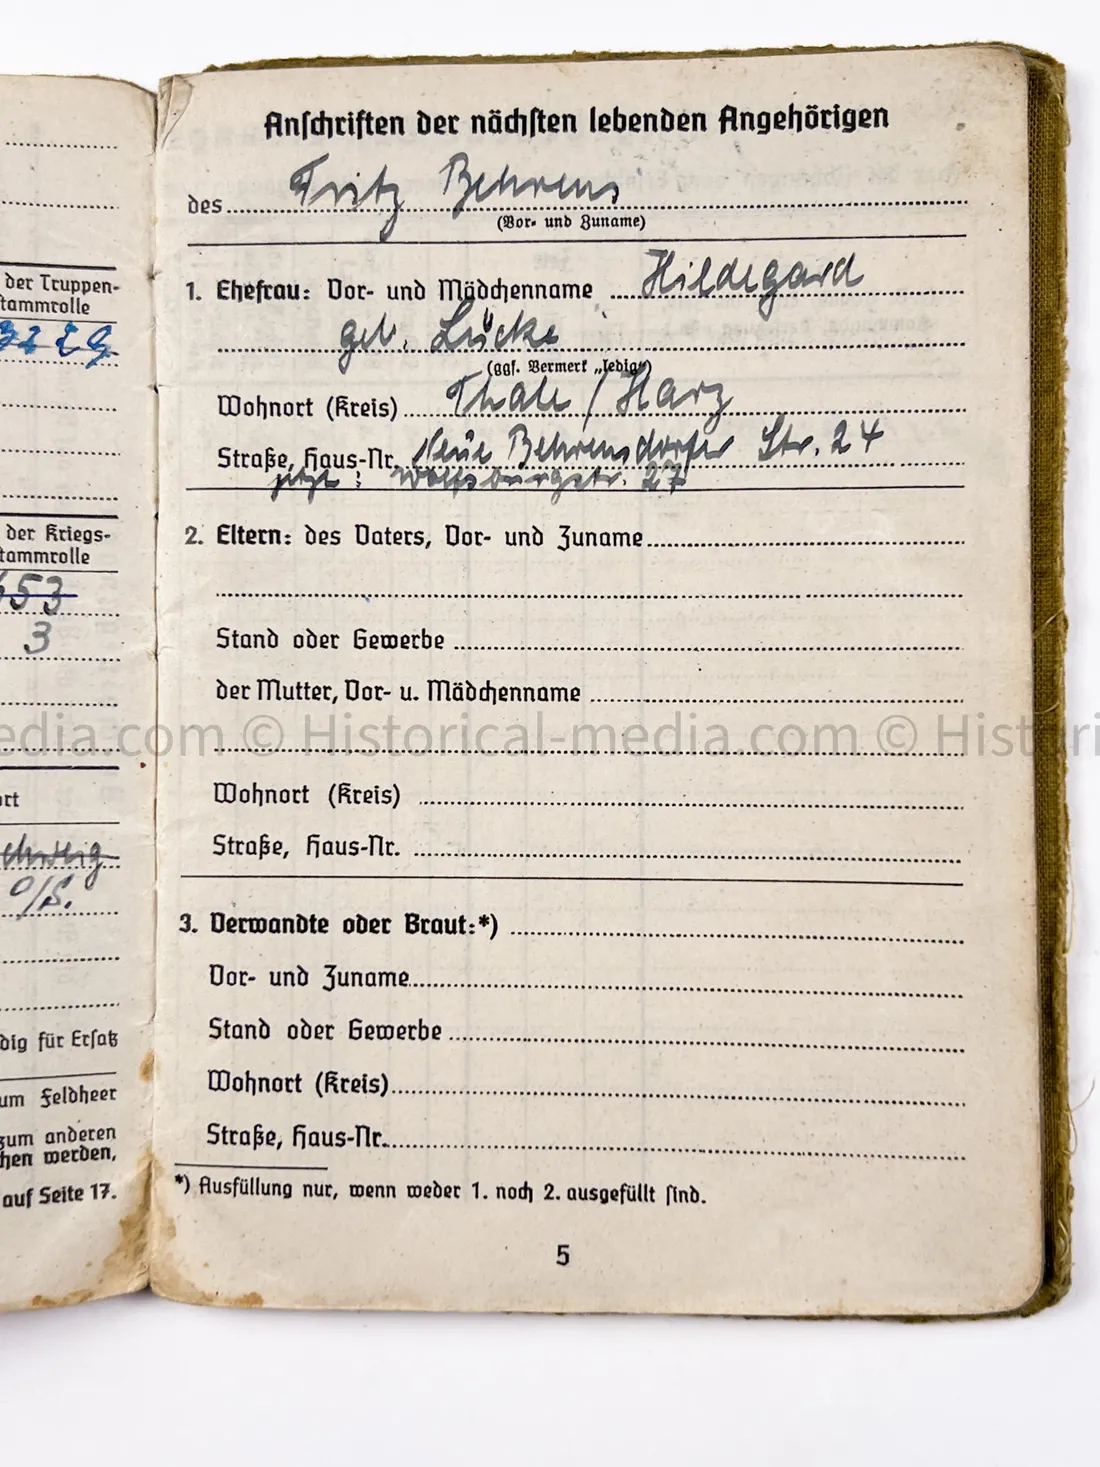 der Truppen-
stammrolle
der Kriegs-
stammrolle
453
3
ort
chweig
O/S.
dig für Ersatz
um Feldheer
zum anderen
hen werden,
auf Seite 17.
Anschriften der nächsten lebenden Angehörigen
des Fritz Behrens
(Vor- und Zuname)
1. Ehefrau: Vor- und Mädchenname Hildegard
geb. Lücke
(ggf. Vermerk „ledig")
Wohnort (Kreis) Thale / Harz
Straße, Haus-Nr. Neue Behrensdorfer Str. 24
jetzt: Wolfsburgstr. 27
2. Eltern: des Vaters, Vor- und Zuname
Stand oder Gewerbe
der Mutter, Vor- u. Mädchenname
edia.com © Historical-media.com © Histori
Wohnort (Kreis)
Straße, Haus-Nr.
3. Verwandte oder Braut:*)
Vor- und Zuname
Stand oder Gewerbe
Wohnort (Kreis)
Straße, Haus-Nr.
*) Ausfüllung nur, wenn weder 1. noch 2. ausgefüllt sind.
5